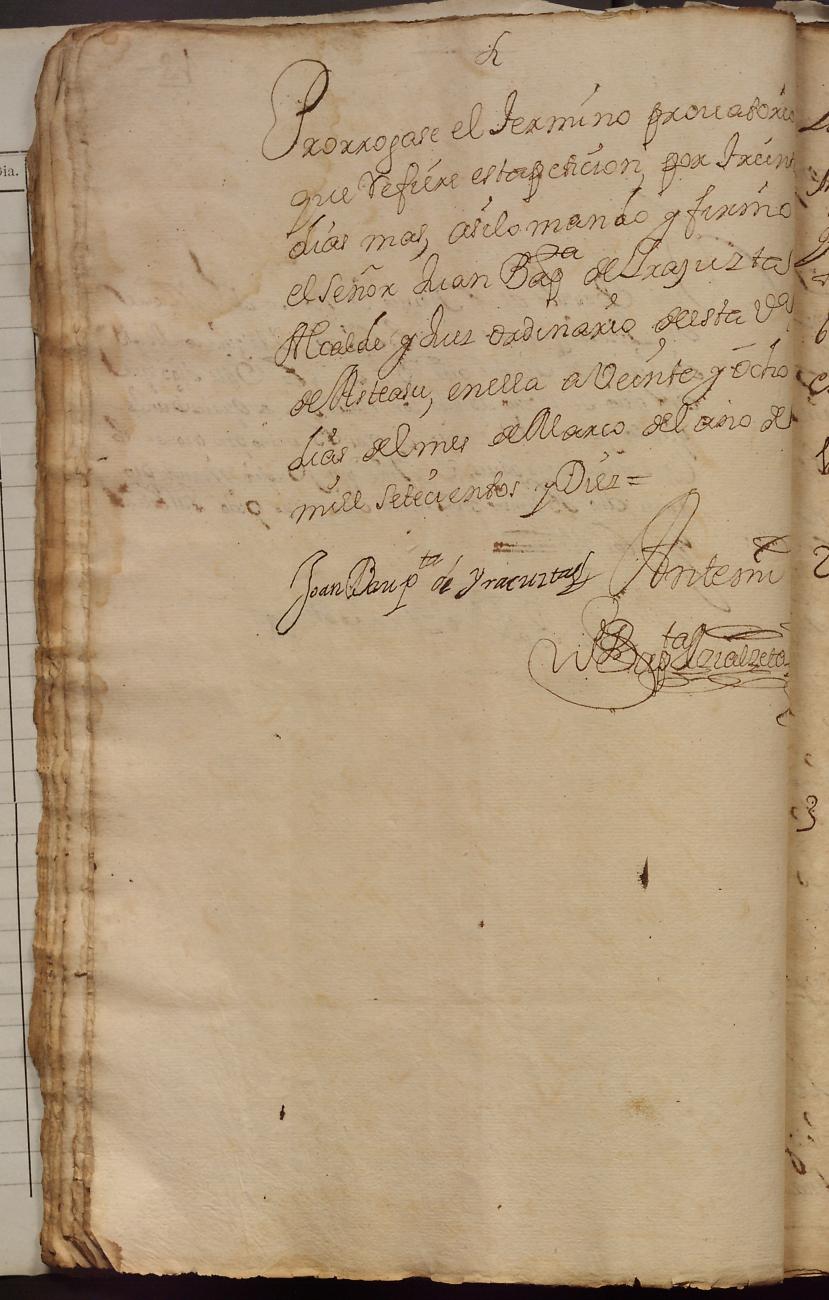 Prorrogase el termino provatorio
que refiere esta peticion, por treint
dias mas, asilo mando y firmo
el señor Juan Bapta de Yraguztas
Alcalde y Juez ordinario desta Va
de Asteasu, enella a Veinte y ocho
dias del mes de Março del año de
mill Setecientos y Diez=
Joan Baupta de Yracuztas Antemi
Bapta